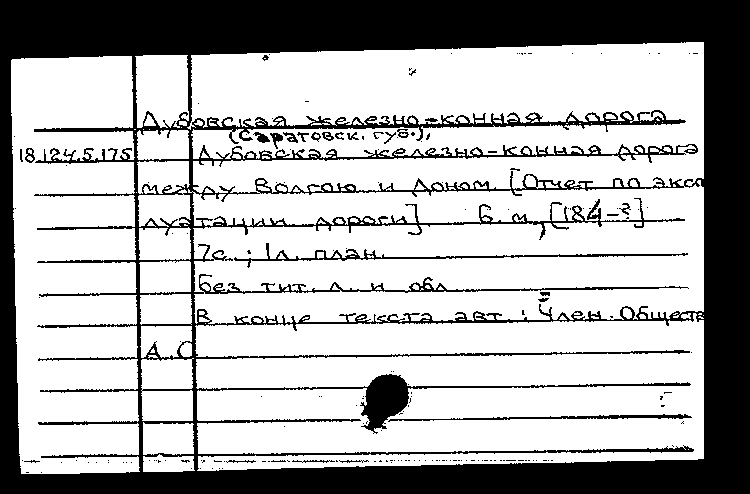 Дубовская железно-конная дорога
(Саратовск. губ.),
18.124.5.175 Дубовская железно-конная дорога
между Волгою и Доном [Отчет по эксп
луатации дороги] Б. м., [184-?]
7с.; 1л. план.
Без тит. л. и обл.
В конце текста авт.: Член Обществ
А. С